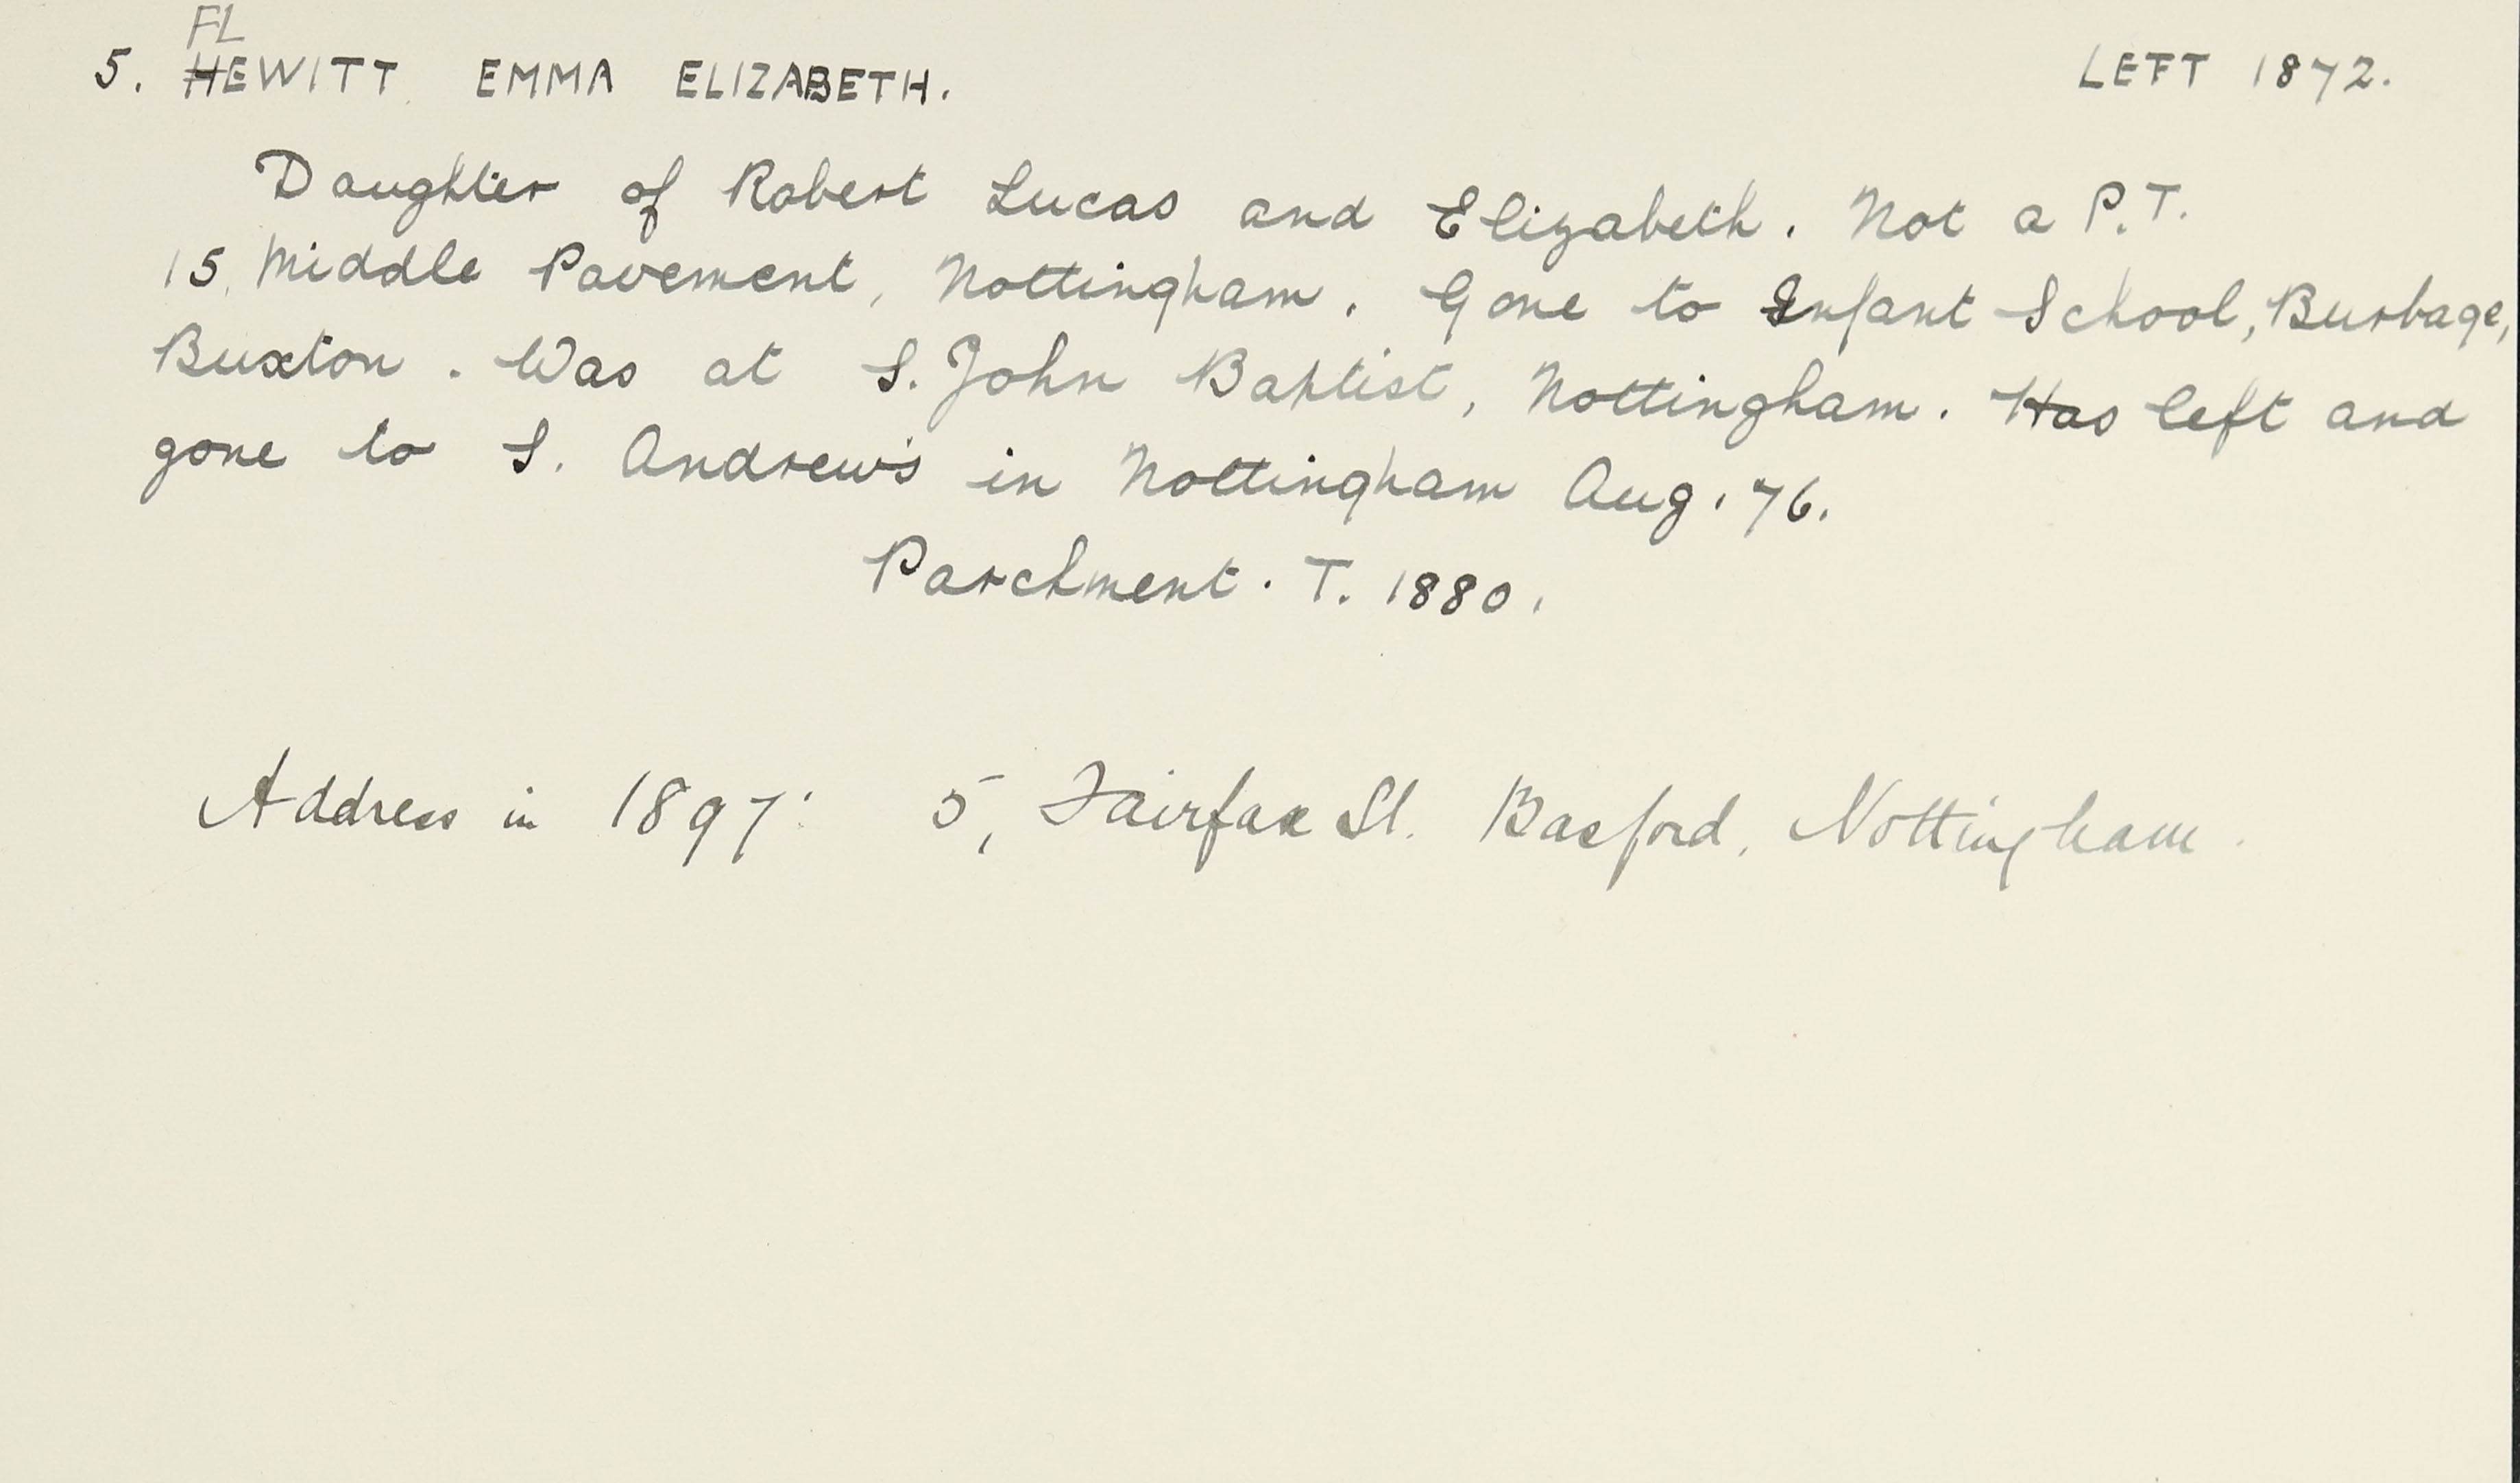 FL
5. HEWITT. EMMA ELIZABETH. LEFT 1872.
Daughter of Robert Lucas and Elizabeth. Not a P.T.
15, Middle Pavement, Nottingham. Gone to Infant School, Burbage,
Buxton. Was at S. John Baptist, Nottingham. Has left and
gone to S. Andrew's in Nottingham Aug. 76.
Parchment. T. 1880.
Address in 1897: 5, Fairfax St. Basford, Nottingham.